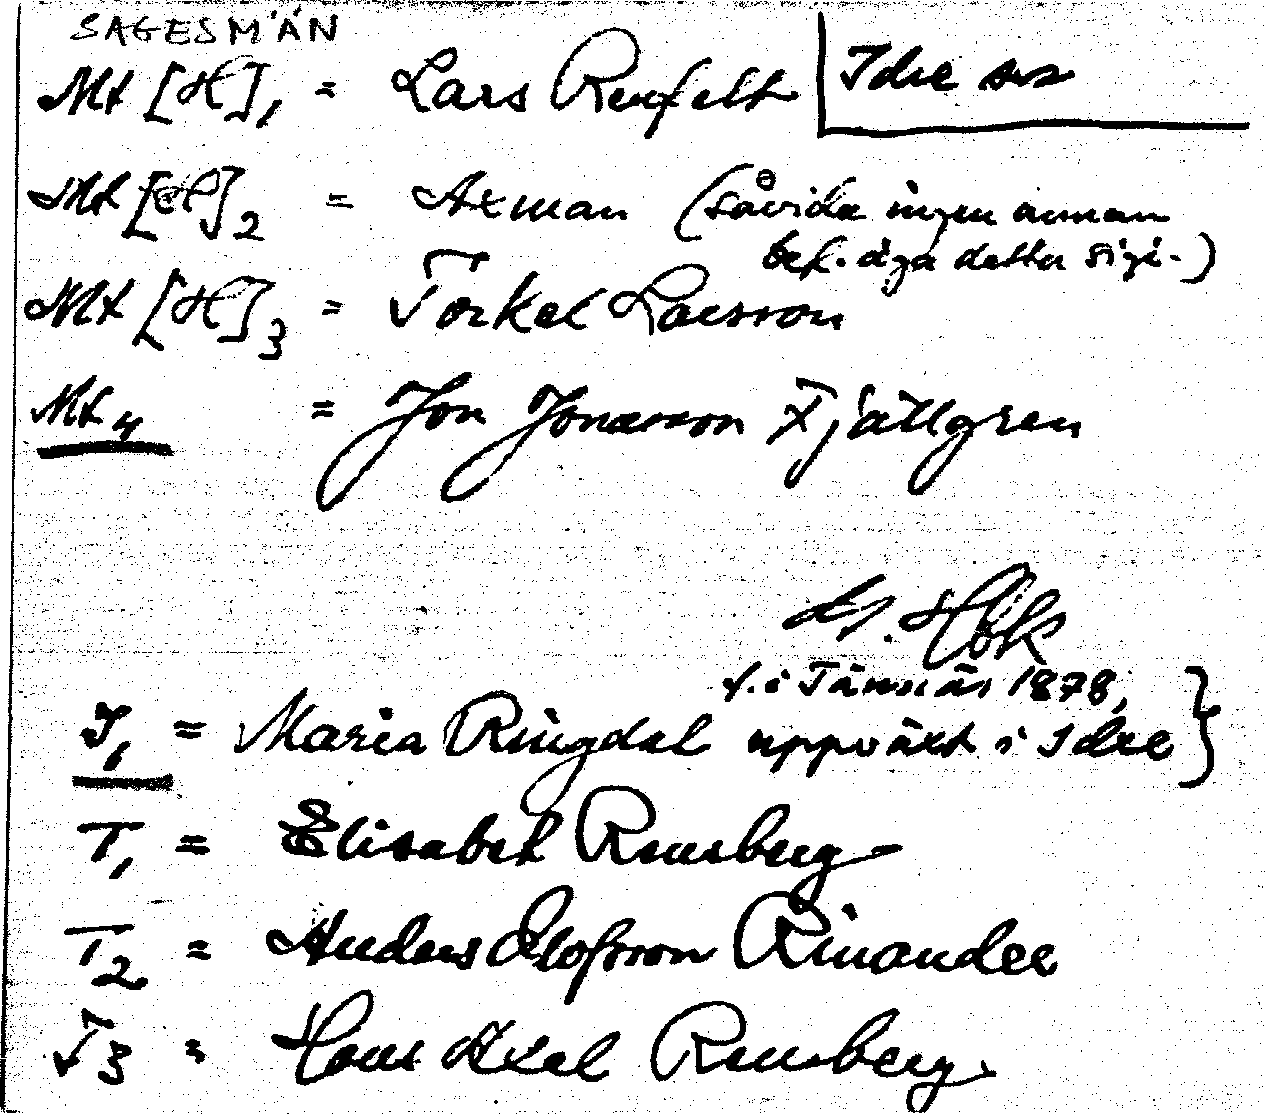 SAGESMÄN
Mt [H]1 = Lars Renfelt
Idre sn
Mt [H]2 = Axman (såvida ingen annan
bef. äga detta sign.)
Mt [H]3 = Torkel Larsson
Mt4 = Jon Jonasson Fjällgren
Hök
f. i Tännäs 1878,
I1 = Maria Ringdal uppväxt i Idre
T1 = Elisabet Rensberg
T2 = Anders Olofsson Rinander
T3 = Hans Axel Rensberg